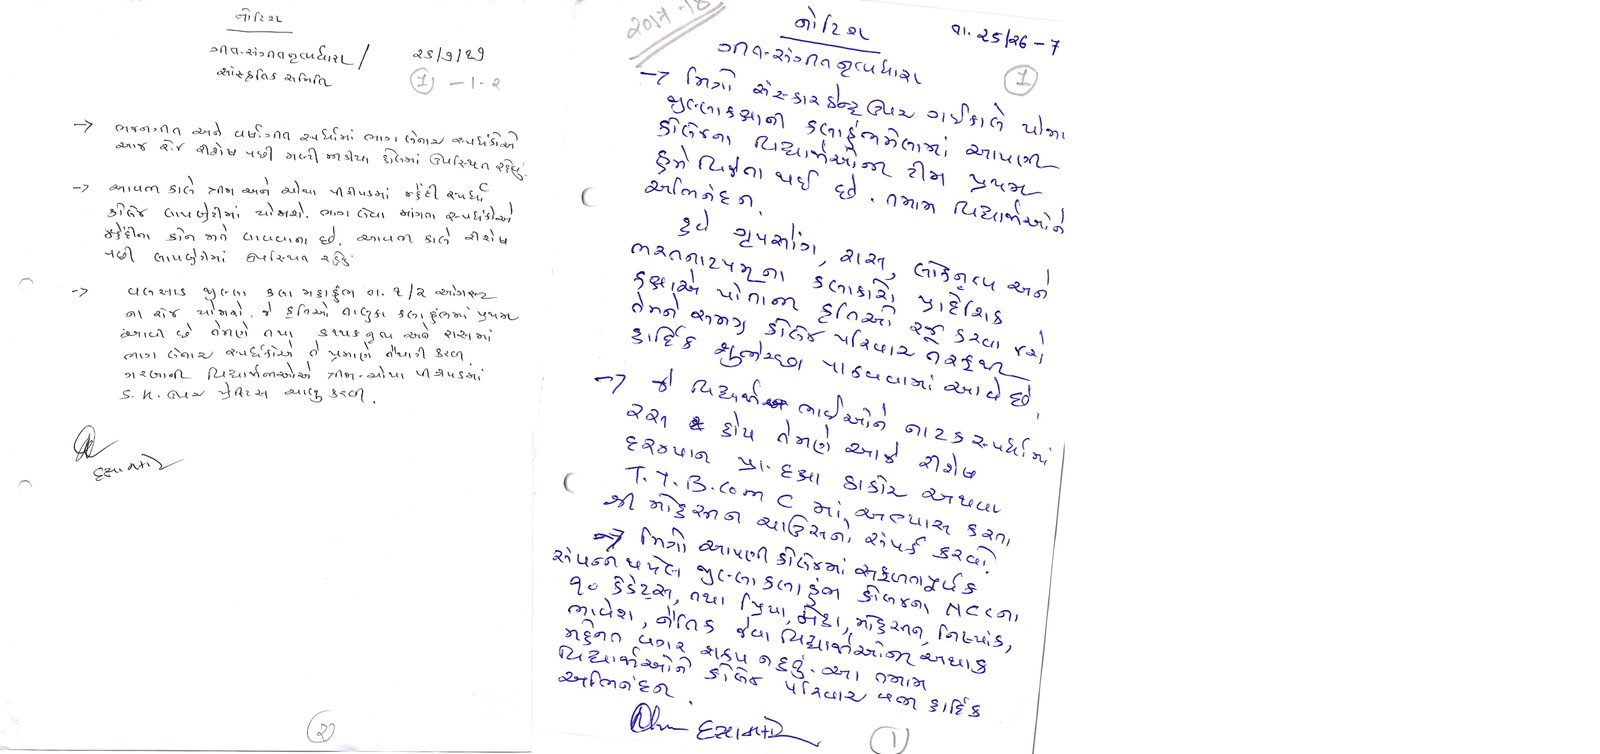 નોટિશ
ગીત-સંગીતનૃત્યધારા / ૨૬/૭/૧૭
સાંસ્કૃતિક સમિતિ ① -1-2
→ ભજનગીત અને વર્ષાગીત સ્પર્ધામાં ભાગ લેનાર સ્પર્ધકોએ
આજ રોજ રીશેષ પછી મણી હોલમાં ઉપસ્થિત રહેવું.
→ આવતી કાલે ત્રીજા અને ચોથા પીરીયડમાં મહેંદી સ્પર્ધા
કોલેજ લાયબ્રેરીમાં યોજાશે. ભાગ લેવા માંગતા સ્પર્ધકોએ
મહેંદીના કોન જાતે લાવવાના છે. આવતી કાલે રીશેષ
પછી લાયબ્રેરીમાં ઉપસ્થિત રહેવું
→ વલસાડ જીલ્લા કલા મહાકુંભ તા. ૧/૨ ઓગસ્ટ
ના રોજ યોજાશે. જે કૃતિઓ તાલુકા કલાકુંભમાં પ્રથમ
આવી છે તેમણે તથા કથ્થકનૃત્ય અને રાસમાં
ભાગ લેનાર સ્પર્ધકોએ તે પ્રમાણે તૈયારી કરવી.
ગરબાની વિદ્યાર્થીનીઓએ ત્રીજા-ચોથા પીરીયડમાં
ઉપર પ્રેક્ટિસ ચાલુ કરવી.
②
2017-18
નોટિશ તા. 25/26-7
ગીત-સંગીતનૃત્યધારા ①
→ મિત્રો સંસ્કારકેન્દ્ર ઉપર ગઈકાલે
જીલ્લાકક્ષાની કલાકુંભમેળામાં આપણી
કોલેજના વિદ્યાર્થીઓની ટીમ પ્રથમ
ક્રમે વિજેતા થઈ છે. તમામ વિદ્યાર્થીઓને
અભિનંદન.
હવે ગૃપસોંગ, રાસ, લોકનૃત્ય અને
ભરતનાટયમ્ ના કલાકારો પ્રાદેશિક
કક્ષાએ પોતાની કૃતિઓ રજૂ કરવા જશે
તેમને સમગ્ર કોલેજ પરિવાર તરફથી
હાર્દિક શુભેચ્છા પાઠવવામાં આવે છે.
→ જે વિદ્યાર્થી ભાઈઓને નાટક સ્પર્ધામાં
રસ હોય તેમણે આજે રીશેષ
દરમ્યાન પ્રા. દક્ષા ઠાકોર અથવા
T.Y.B.Com C માં અભ્યાસ કરતા
શ્રી મોહસીન ચાઉસનો સંપર્ક કરવો.
→ મિત્રો આપણી કોલેજમાં સફળતાપૂર્વક
સંપન્ન થયેલ જીલ્લા કલાકુંભ કોલેજના NCCના
૧૦ કેડેટ્સ, તથા પ્રિયા, મોહસીન,
ભાવેશ, નૈતિક જેવા વિદ્યાર્થીઓની અથાક
મહેનત વગર શક્ય ન હતું. આ તમામ
વિદ્યાર્થીઓને કોલેજ પરિવાર વતી હાર્દિક
અભિનંદન.
①